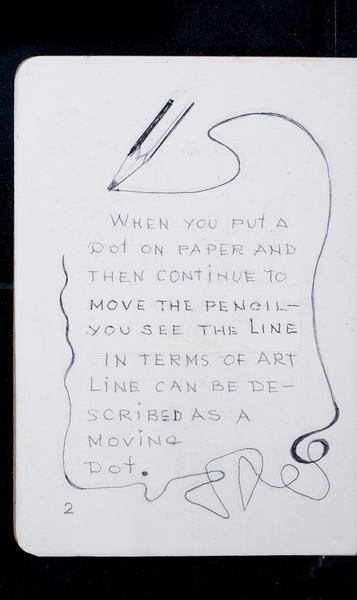 WHEN YOU PUT A
DOT ON PAPER AND
THEN CONTINUE TO
MOVE THE PENCIL—
YOU SEE THE LINE
IN TERMS OF ART
LINE CAN BE DE-
SCRIBED AS A
MOVING
DOT.
2